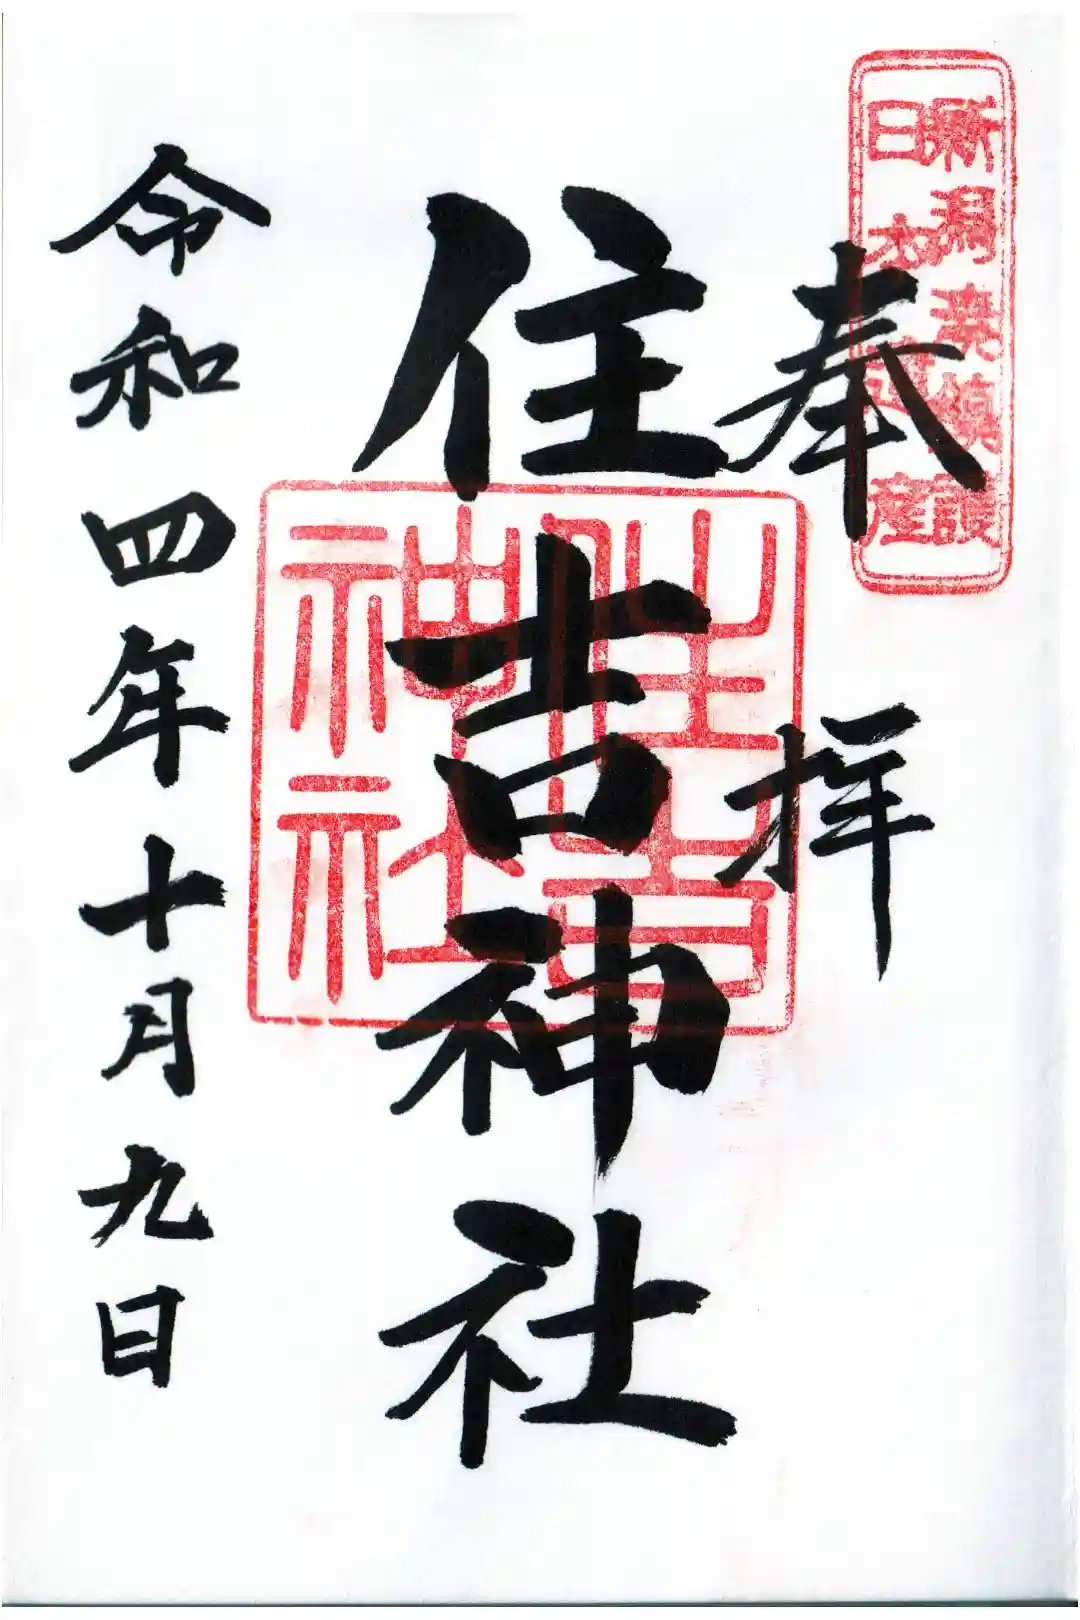 新潟湊鎮護
日本遺産
奉拝
住吉神社
住吉
神社
令和四年十月九日